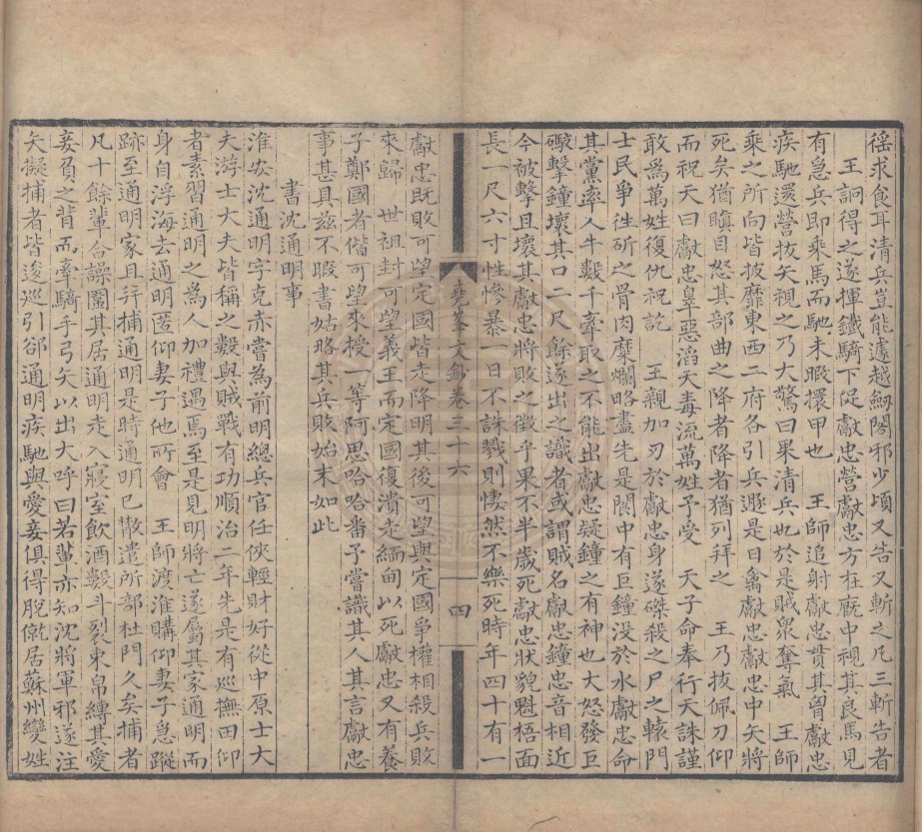 徭求食耳清兵豈能遽越劒閣邪少頃又告又斬之凡三斬告者
王詗得之遂揮鐵騎下促獻忠營獻忠方在廐中視其良馬見
有急兵即乘馬而馳未暇擐甲也 王師追射獻忠貫其胷獻忠
疾馳還營拔矢視之乃大驚曰果清兵也於是賊衆奪氣 王師
乘之所向皆披靡東西二府各引兵遯是日禽獻忠獻忠中矢將
死矣猶瞋目怒其部曲之降者降者猶列拜之 王乃拔佩刀仰
而祝天曰獻忠辠惡滔天毒流萬姓予受 天子命奉行天誅謹
敢爲萬姓復仇祝訖 王親加刃於獻忠身遂磔殺之尸之轅門
士民爭徃斫之骨肉糜爛略盡先是閬中有巨鐘没於水獻忠命
其黨率人牛數千牽取之不能出獻忠疑鐘之有神也大怒發巨
礮擊鐘壞其口二尺餘遂出之識者或謂賊名獻忠鐘忠音相近
今被擊且壞其獻忠將敗之徵乎果不半歲死獻忠狀貌魁梧面
長一尺六寸性慘暴一日不誅戮則悽然不樂死時年四十有一
堯峯文鈔卷三十六
四
獻忠既敗可望定國皆走降明其後可望與定國爭權相殺兵敗
來歸 世祖封可望義王而定國復潰走緬甸以死獻忠又有養
子鄭國者偕可望來授一等阿思哈哈番予嘗識其人其言獻忠
事甚具兹不暇書姑略其兵敗始末如此
書沈通明事
淮安沈通明字克赤嘗爲前明總兵官任俠輕財好從中原士大
夫游士大夫皆稱之數與賊戰有功順治二年先是有巡撫田仰
者素習通明之爲人加禮遇焉至是見明將亡遂屬其家通明而
身自浮海去通明匿仰妻子他所會 王師渡淮購仰妻子急蹤
跡至通明家且幷捕通明是時通明已散遣所部杜門久矣捕者
凡十餘輩合譟圍其居通明走入寢室飲酒數斗裂束帛縛其愛
妾負之背而牽騎手弓矢以出大呼曰若輩亦知沈將軍邪遂注
矢擬捕者皆逡巡引郤通明疾馳與愛妾俱得脫僦居蘇州變姓